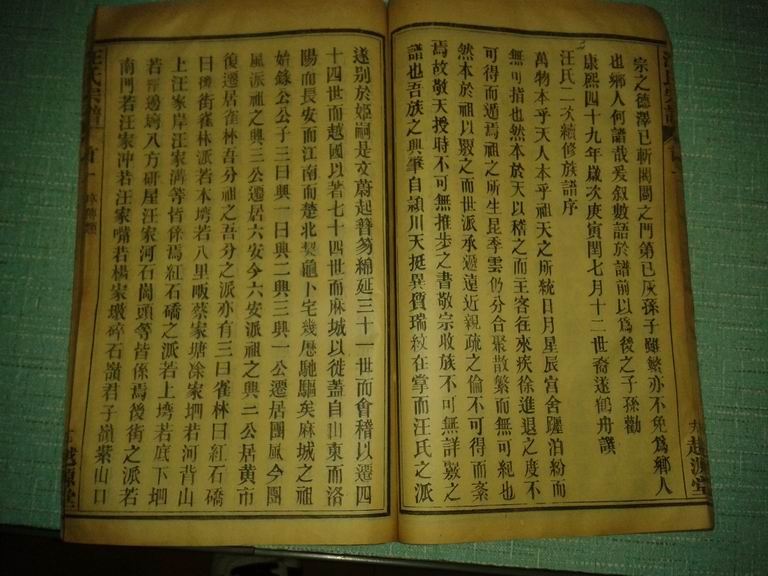 宗之德澤已斬閥閱之門第已灰孫子雖繁亦不免為鄉人
也鄉人何譜哉爰叙數語於譜前以為後之子孫勸
康熙四十九年歲次庚寅閏七月十二世裔遂鶴舟譔
汪氏二次續修族譜序
萬物本乎天人本乎祖天之所統日月星辰宮舍躔泊紛而
無可指也然本於天以稽之而王客往來疾徐進退之度不
可得而遁焉祖之所生昆季雲仍分合聚散繁而無可紀也
然本於祖以覈之而世派承遞遠近親疏之倫不可得而紊
焉故敬天授時不可無推步之書敬宗收族不可無詳覈之
譜也吾族之興肇自潁川天挺異質瑞紋在掌而汪氏之派
遂别於姬嗣是文蔚起簪笏綿延三十一世而會稽以遷四
十四世而越國以著七十四世而麻城以徙蓋自山東而洛
陽而長安而江南而楚北契龜卜宅幾歷馳驅矣麻城之祖
始錄公公子三曰興一曰興二興三興一公遷居團風今團
風派祖之興三公遷居六安今六安派祖之興二公居黄市
復遷居雀林吾分祖之吾分之派亦有三曰雀林曰紅石礄
曰後街雀林派若本塆若八里畈蔡家塘涂家垇若河背山
上汪家岸汪家溝等皆係焉紅石礄之派若上塆若底下垇
若 邊塆八方研屋汪家河石崗頭等皆係焉後街之派若
南門若汪家冲若汪家嘴若楊家墩碎石嶺君子嶺紫山口
汪氏宗譜
首一
越源堂